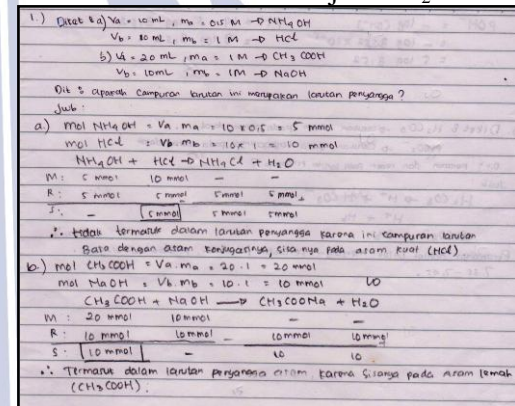 1.) Dikt : a) Va = 10 mL, ma = 0,5 M → NH4OH
Vb = 10 mL, mb = 1 M → HCl
b) Va = 20 mL, ma = 1M → CH3COOH
Vb = 10mL, mb = 1M → NaOH
Dit : apakah campuran larutan ini merupakan larutan penyangga?
Jwb :
a.) mol NH4OH = Va . ma = 10 x 0,5 = 5 mmol
mol HCl = Vb mb = 10 x 1 = 10 mmol
NH4OH + HCl → NH4Cl + H2O
M : 5 mmol 10 mmol - -
R : 5 mmol 5 mmol 5 mmol 5 mmol
S : - 5 mmol 5 mmol 5 mmol
∴ tidak termasuk dalam larutan penyangga karena ini campuran larutan
Basa dengan asam konjugasinya, sisa nya pada asam kuat (HCl)
b.) mol CH3COOH = Va . ma = 20 . 1 = 20 mmol
mol NaOH = Vb . mb = 10 . 1 = 10 mmol
CH3COOH + NaOH → CH3COONa + H2O
M : 20 mmol 10 mmol - -
R : 10 mmol 10 mmol 10 mmol 10 mmol
S : 10 mmol - 10 10
∴ Termasuk dalam larutan penyangga asam, karena sisanya pada Asam lemah
(CH3COOH).